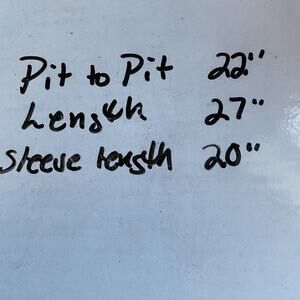 Pit to Pit 22"
Length 27"
Sleeve length 20"